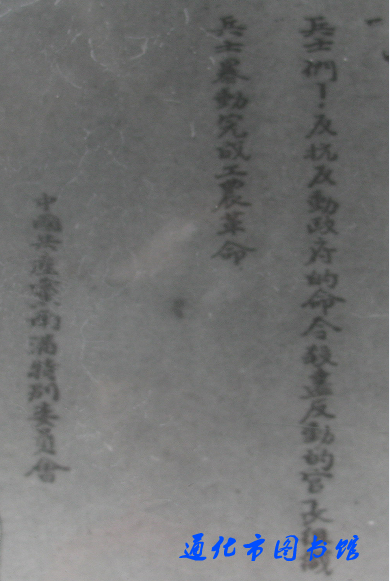 兵士們！反抗反動政府的命令殺盡反動的官長組織
兵士暴動完成工農革命
中國共產黨南滿特別委員會
通化市图书馆